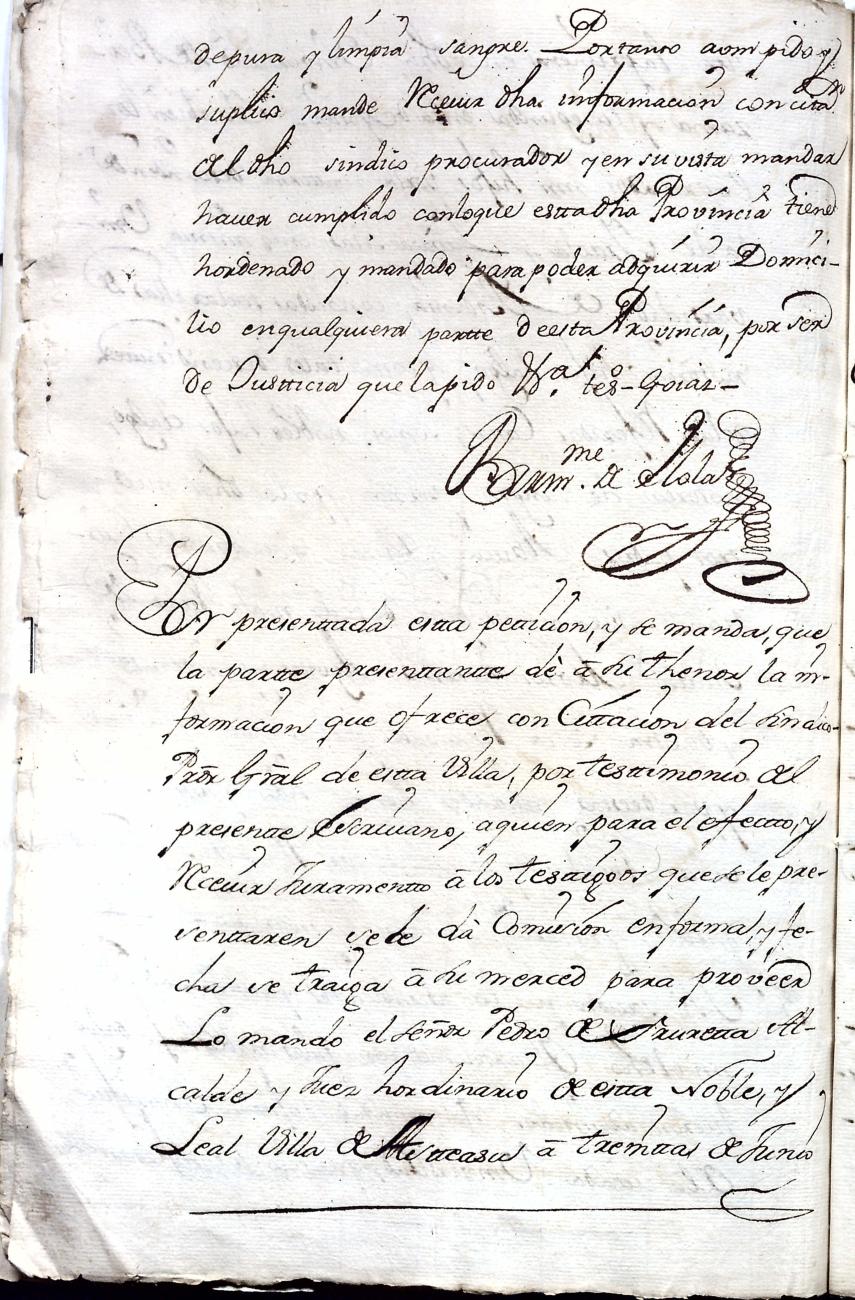 de pura y limpia sangre. Por tanto a vm pido y
suplico mande Receuir dha. informacion con citaon.
del dho sindico procurador y en su vista mandar
hauer cumplido con loque estta dha Provincia tiene
hordenado y mandado para poder adquirir Domici-
lio en qualquiera partte de esta Provincia, por ser
de Justticia que la pido
Barme. de Olola
Por presenttada estta petticion, y se manda, que
la partte presenttantte dè â su thenor la in-
formacion que ofrece con Cittacion del sindico
Pror Gral de estta Villa, por testimonio del
presentte Escriuano, aquien para el efectto, y
Receuir Juramentto â los testtigos que se le pre-
senttaren se le dâ Comision en forma, y fe-
cha se traiga â su merced para proveer
Lo mando el señor Pedro de Yruretta Al-
calde y Juez hordinario de estta Noble, y
Leal Villa de Astteasu â treintta de Junio